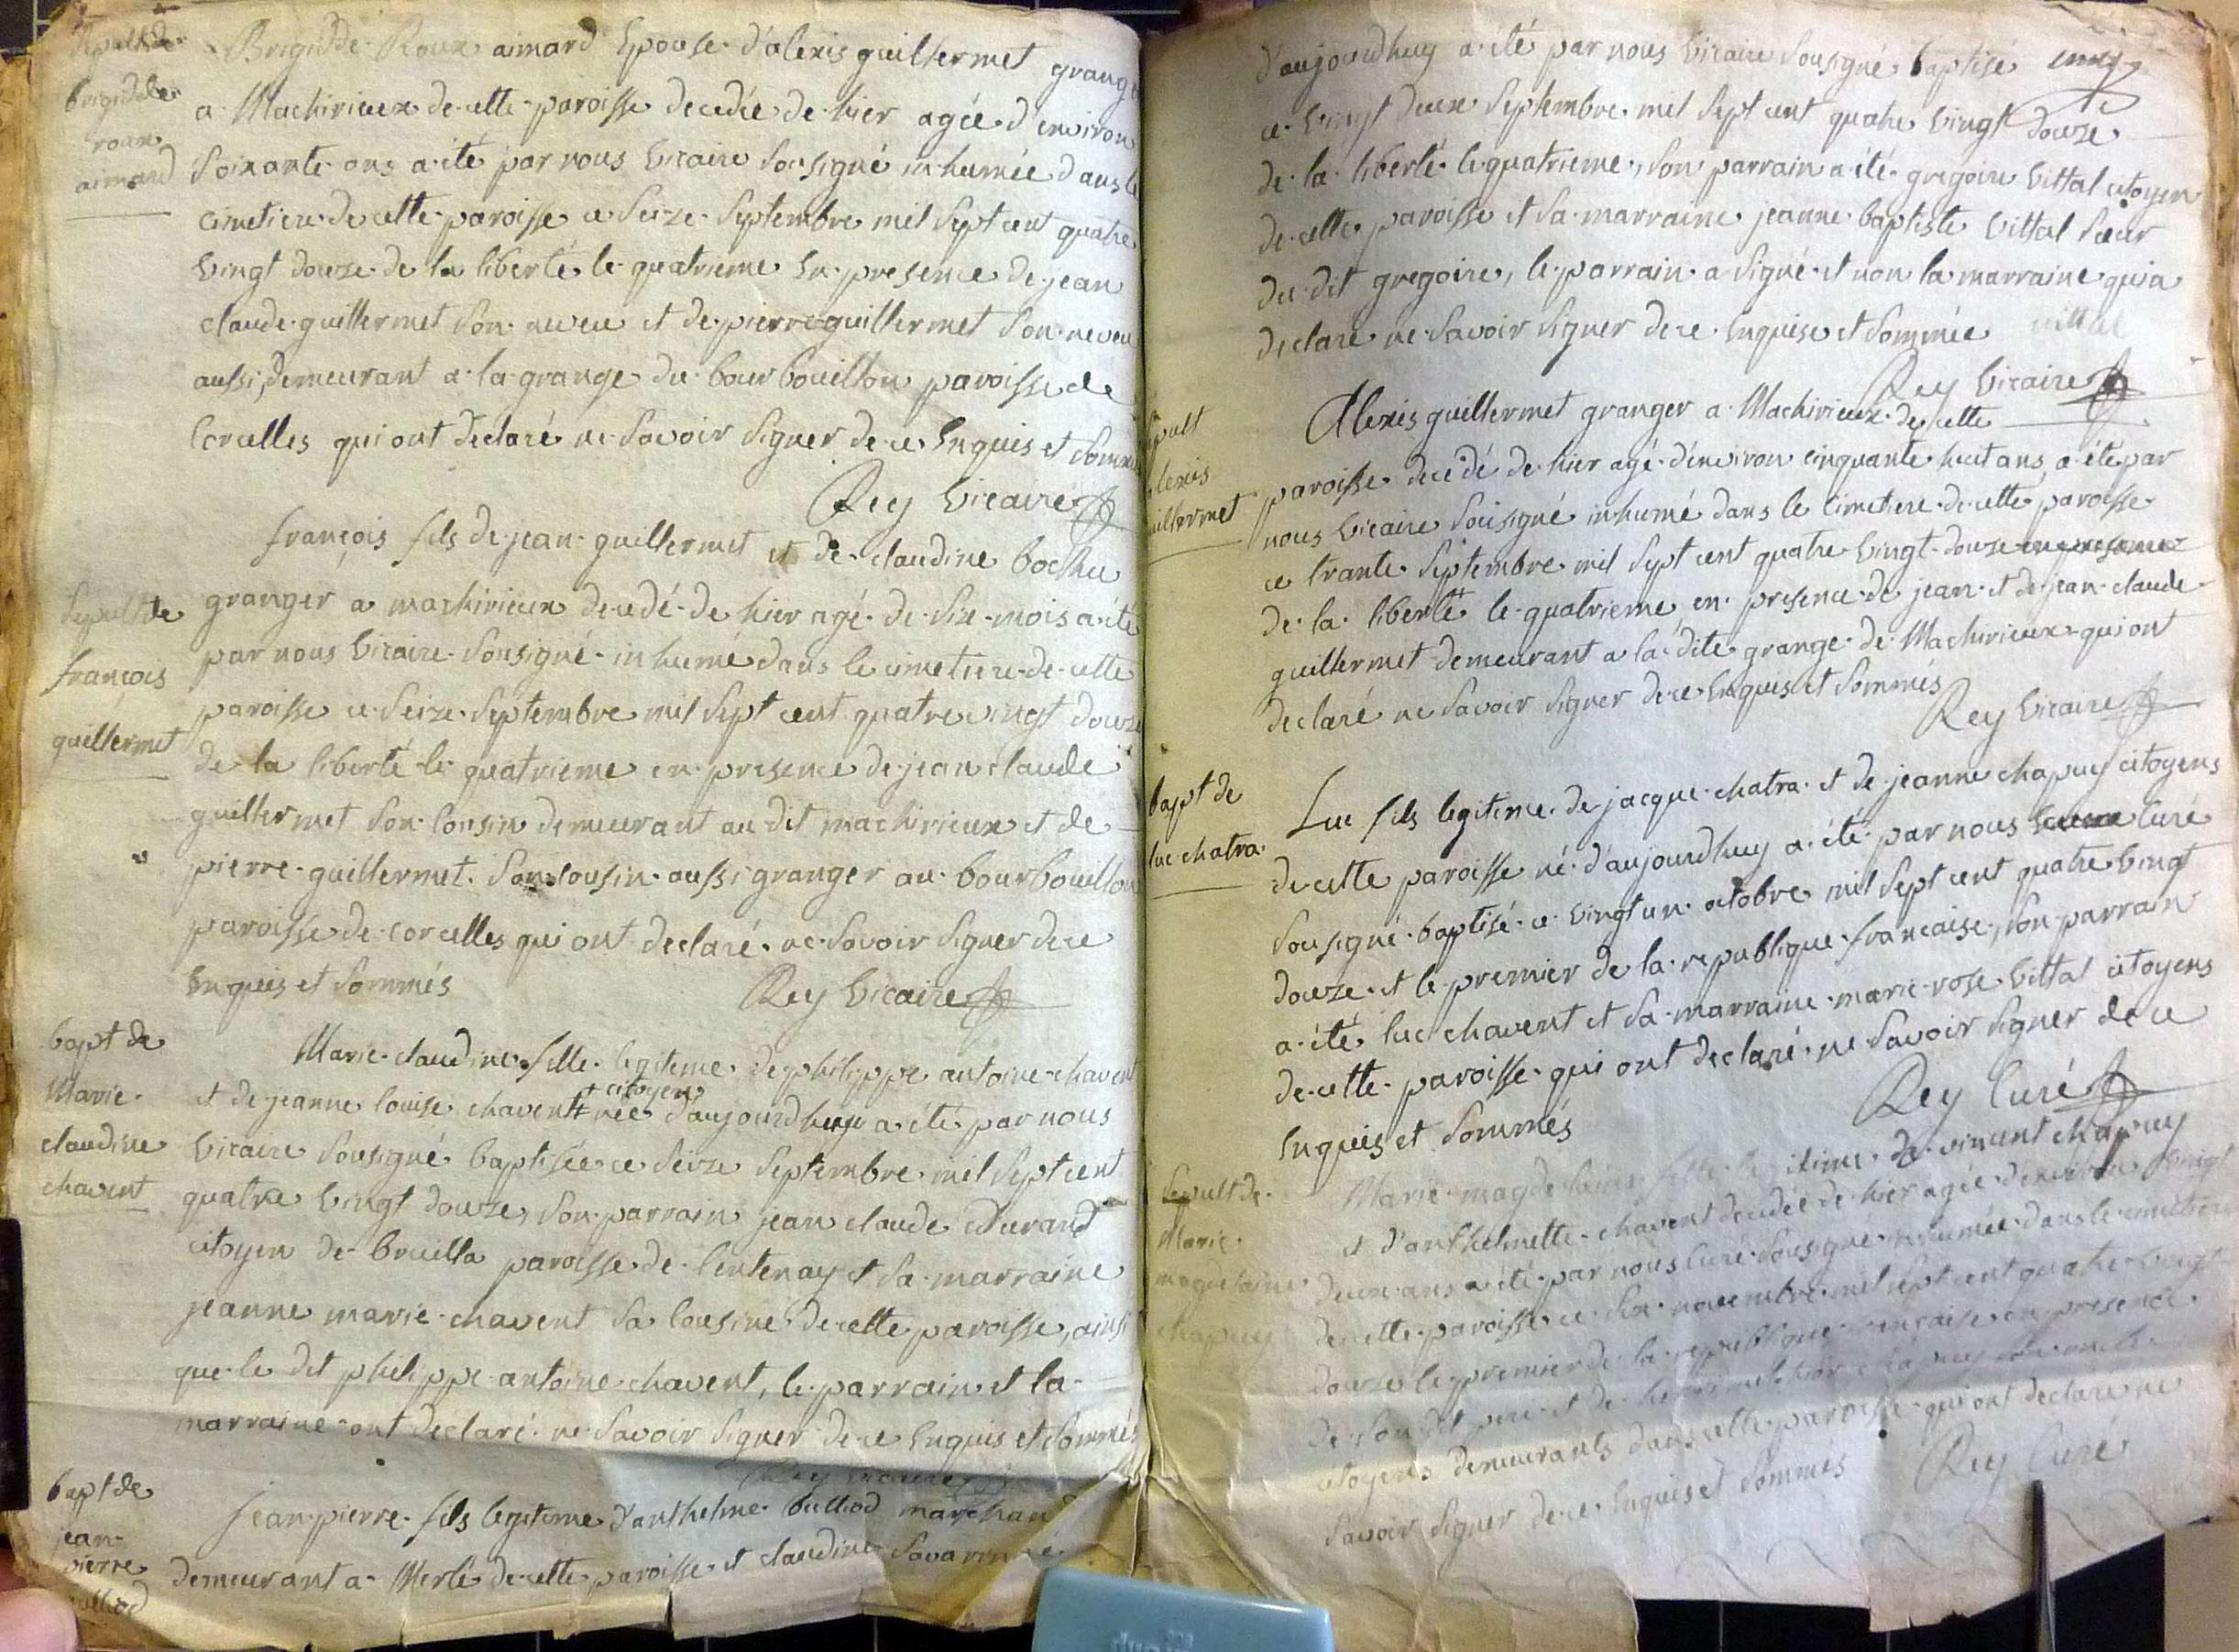 sepult de
brigide
roux
aimard
Brigide Roux aimard Epouse d'alexis guillermet grang
a Machirieux de cette paroisse decedée de hier agée d'environ
soixante ans a été par nous vicaire sousigné inhumée dans le
cimetiere de cette paroisse ce seize septembre mil sept cent quatre
vingt douze de la liberté le quatrieme En presence de jean
claude guillermet son neveu et de pierre guillermet son neveu
aussi, demeurant a la grange du bourbouillon paroisse de
Corcelles qui ont declaré ne savoir signer de ce Enquis et sommés
Rey vicaire
sepult de
françois
guillermet
françois fils de jean guillermet et de claudine bochu
granger a machirieux decedé de hier agé de six mois a été
par nous vicaire sousigné inhumé dans le cimetiere de cette
paroisse ce seize septembre mil sept cent quatre vingt douze
de la liberté le quatrieme en presence de jean claude
guillermet son cousin demeurant au dit machirieux et de
pierre guillermet son cousin aussi granger au bourbouillon
paroisse de corcelles qui ont declaré ne savoir signer de ce
Enquis et sommés
Rey vicaire
bapt de
Marie
claudine
chavent
Marie claudine fille legitime de philippe antoine chavent
et de jeanne louise chavent + citoyens née d'aujourdhuy a été par nous
vicaire sousigné baptisée ce seize septembre mil sept cent
quatre vingt douze, son parrain jean claude durand
citoyen de bruilla paroisse de lentenay et sa marraine
jeanne marie chavent sa cousine de cette paroisse, ainsi
que le dit philippe antoine chavent, le parrain et la
marraine ont declaré ne savoir signer de ce Enquis et sommés
Rey vicaire
bapt de
jean
pierre
bulliod
jean pierre fils legitime d'anthelme bulliod marchand
demeurant a Merle de cette paroisse et claudine savarin né
d'aujourdhuy a été par nous vicaire sousigné baptisé
ce vingt deux septembre mil sept cent quatre vingt douze
de la liberté le quatrieme, son parrain a été gregoire vittal citoyen
de cette paroisse et sa marraine jeanne baptiste vittal sœur
du dit gregoire, le parrain a signé et non la marraine qui a
declaré ne savoir signer de ce Enquise et sommée
vittal
Rey vicaire
sepult
alexis
guillermet
Alexis guillermet granger a Machirieux de cette
paroisse decedé de hier agé d'environ cinquante huit ans a été par
nous vicaire sousigné inhumé dans le cimetiere de cette paroisse
ce trante septembre mil sept cent quatre vingt douze en presence
de la liberté le quatrieme en presence de jean et de jean claude
guillermet demeurant a la dite grange de Machirieux qui ont
declaré ne savoir signer de ce Enquis et sommés
Rey vicaire
bapt de
luc chatra
Luc fils legitime de jacque chatra et de jeanne chapuy citoyens
de cette paroisse né d'aujourdhuy a été par nous curé
sousigné baptisé ce vingt un octobre mil sept cent quatre vingt
douze et le premier de la republique francaise, son parrain
a été luc chavent et sa marraine marie rose vittal citoyens
de cette paroisse qui ont declaré ne savoir signer de ce
Enquis et sommés
Rey Curé
sepult de
Marie
magdelaine
chapuy
Marie magdelaine fille legitime de vincent chapuy
et d'anthelmette chavent decedée de hier agée d'environ vingt
deux ans a été par nous curé sousigné inhumée dans le cimetiere
de cette paroisse ce six novembre mil sept cent quatre vingt
douze le premier de la republique francaise en presence
de son dit pere et de chapuy son oncle
citoyens demeurants dans cette paroisse qui ont declaré ne
savoir signer de ce Enquis et sommés
Rey Curé